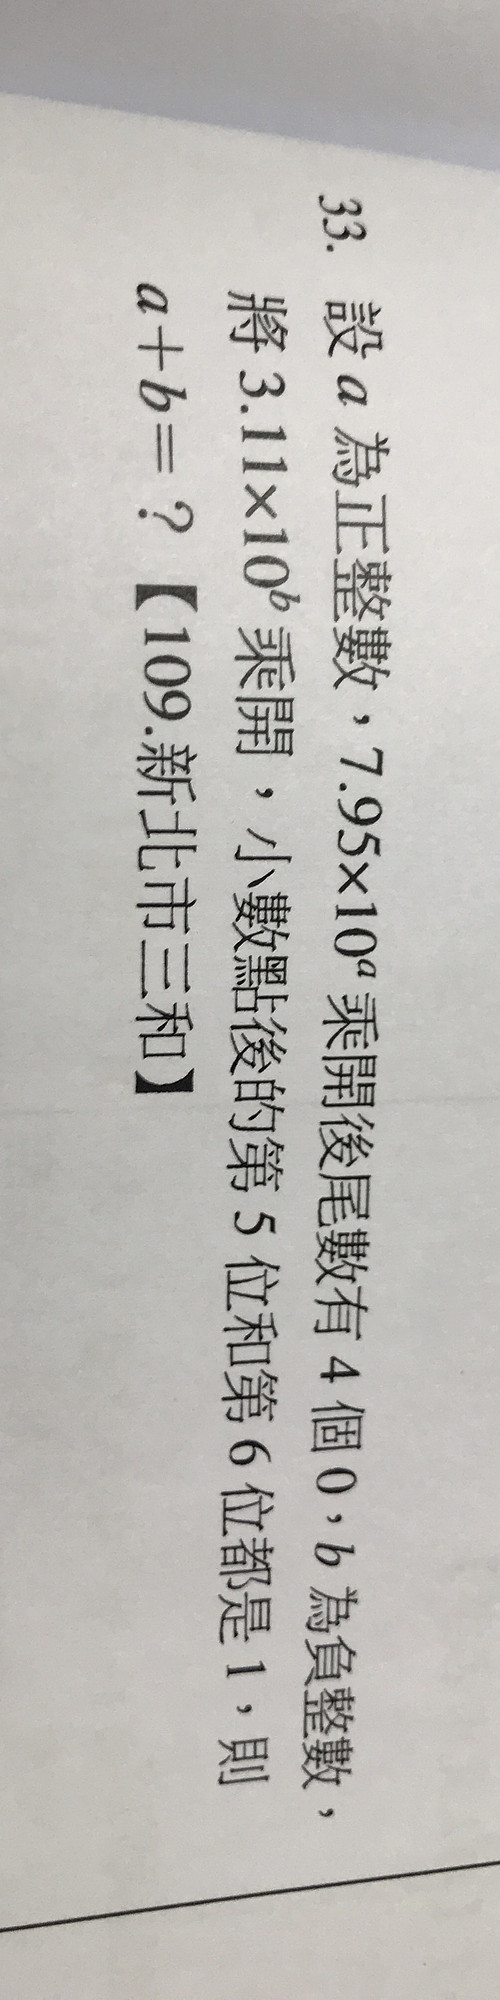 33. 設 a 為正整數，7.95×10ᵃ 乘開後尾數有 4 個 0，b 為負整數，
將 3.11×10ᵇ 乘開，小數點後的第 5 位和第 6 位都是 1，則
a＋b＝？【109.新北市三和】